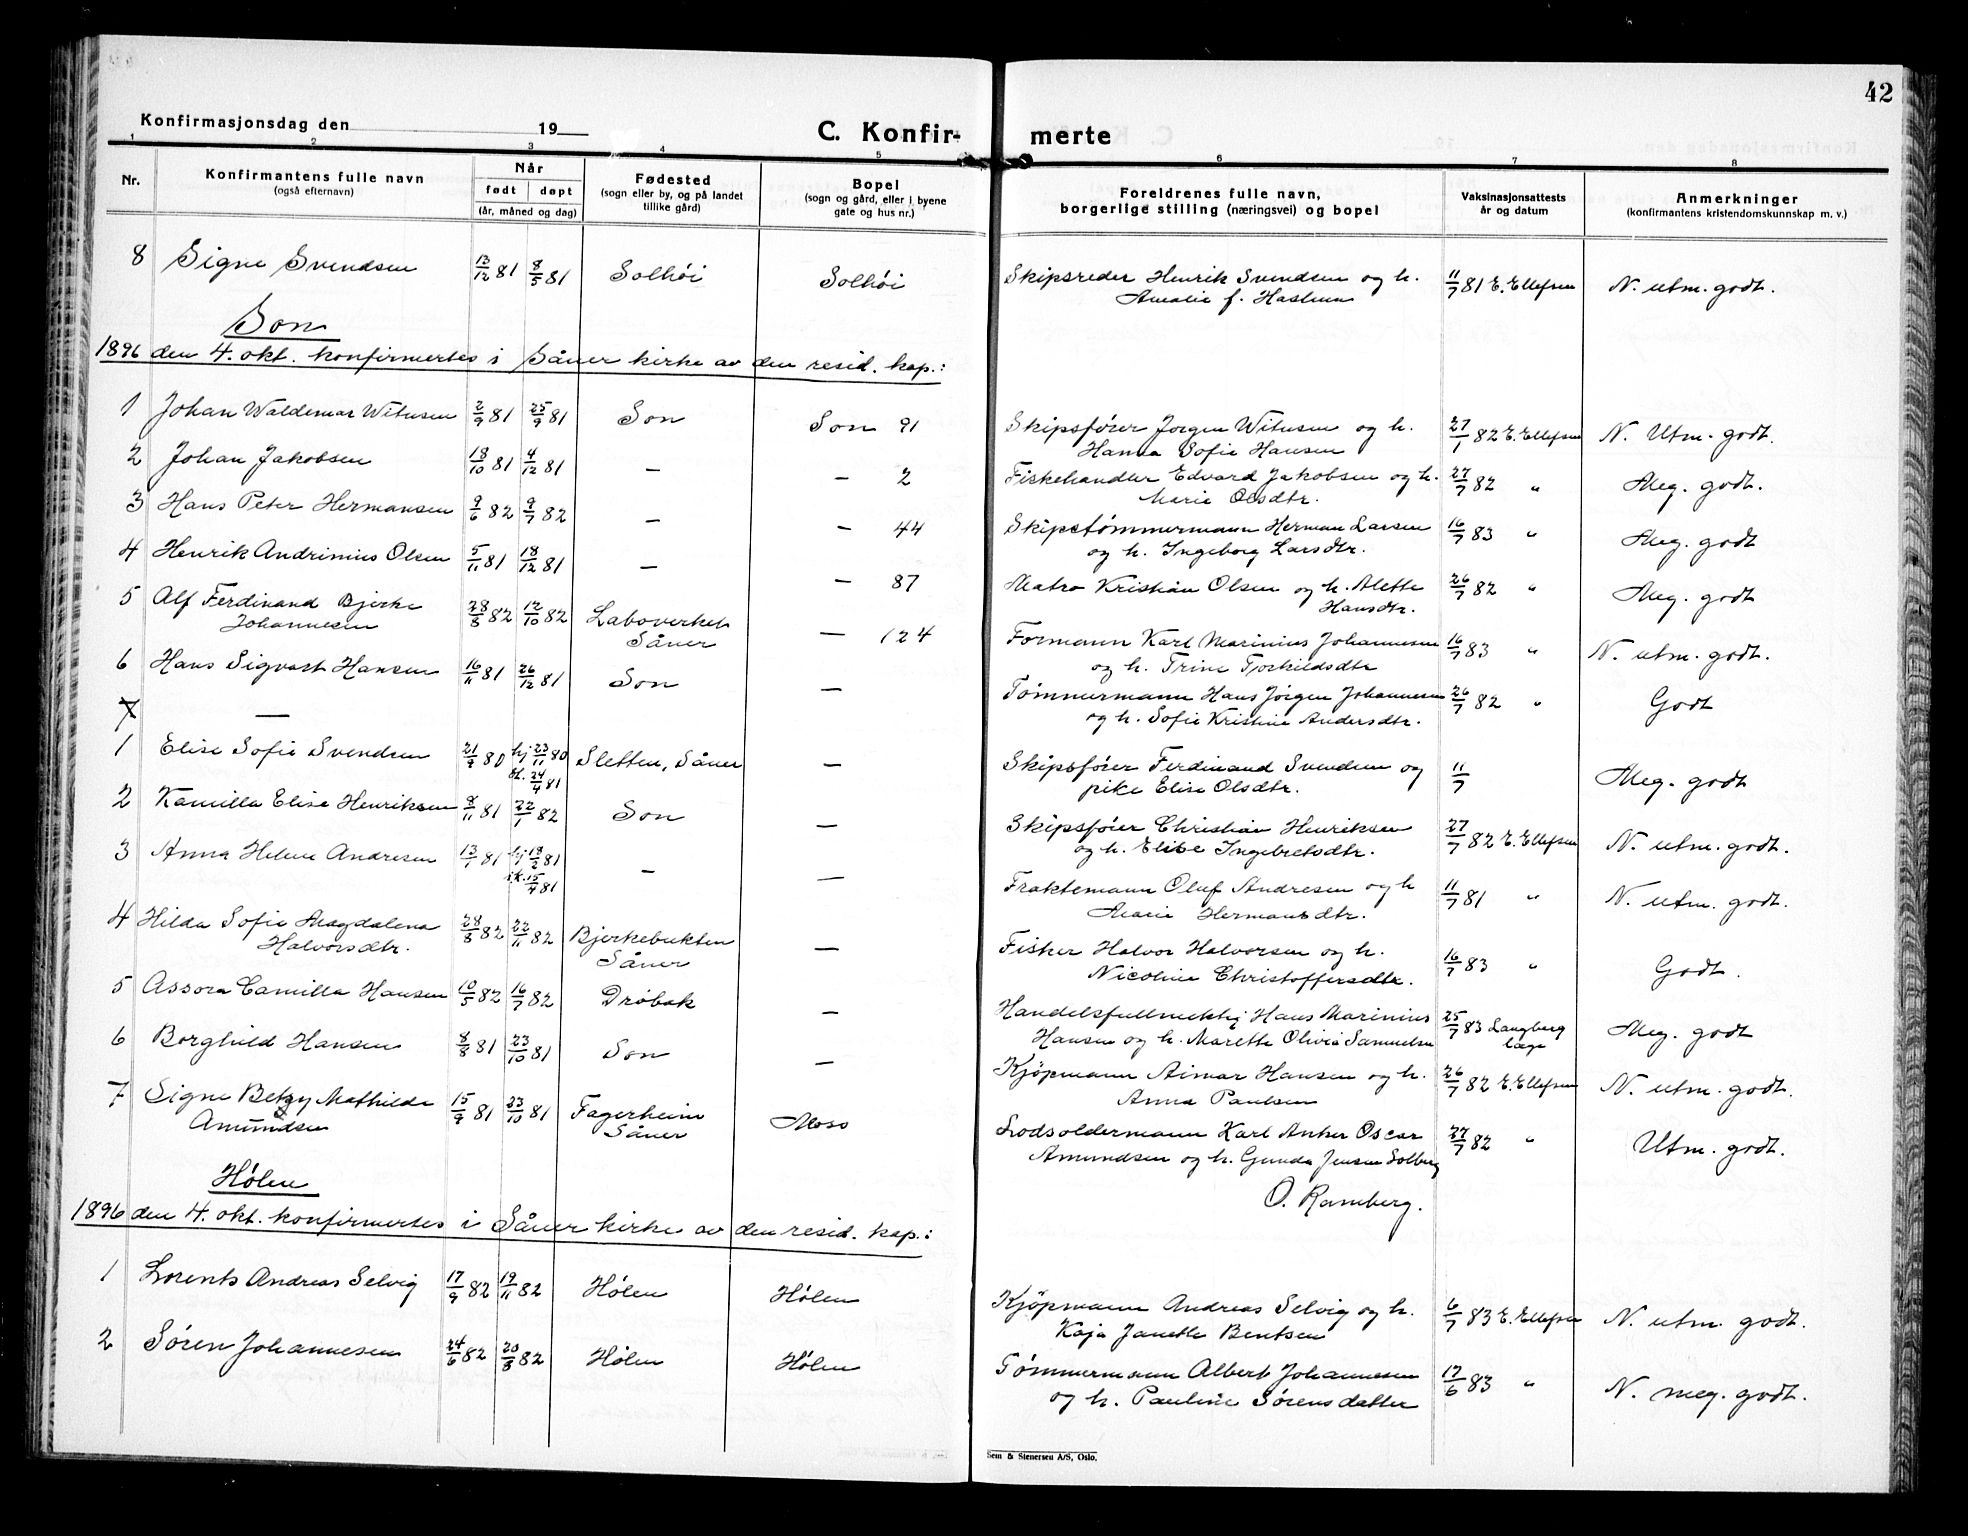 42
Konfirmasjonsdag den 19
C. Konfir- merte
1 2 3 4 5 6 7 8
Nr. Konfirmantens fulle navn (også efternavn) Når født døpt (år, måned og dag) Fødested (sogn eller by, og på landet tillike gård) Bopel (sogn og gård, eller i byene gate og hus nr.) Foreldrenes fulle navn, borgerlige stilling (næringsvei) og bopel Vaksinasjonsattests år og datum Anmerkninger (konfirmantens kristendomskunnskap m. v.)
8 Signe Svendsen 13/12 81 8/5 81 Solhöi Solhöi Skipsreder Henrik Svendsen og h. 11/7 81 E. Ellefsen N. utm. godt.
Amalie f. Haslum
Son
1896 den 4. okt. konfirmertes i Såner kirke av den resid. kap.:
1 Johan Waldemar Witusen 2/9 81 25/9 81 Son Son 91 Skipsfører Jørgen Witusen og h. 27/1 82 E. Ellefsen N. Utm. godt.
Hanna Sofie Hansen
2 Johan Jakobsen 18/10 81 4/12 81 — — 2 Fiskehandler Edvard Jakobsen og h. 27/7 82 " Meg. godt.
Marie Olsdtr.
3 Hans Peter Hermansen 9/6 82 9/7 82 — — 44 Skipstømmermann Herman Larsen 16/7 83 " Meg. godt
og h. Ingeborg Larsdtr.
4 Henrik Andrimius Olsen 5/11 81 18/12 81 — — 87 Matro Kristian Olsen og h. Alette 26/7 82 " Meg. godt
Hansdtr.
5 Alf Ferdinand Bjerke 28/8 82 12/10 82 Laboverket — 124 Formann Karl Marinius Johannesen 16/7 83 " N. utm. godt.
Johannesen Såner og h. Trine Torkildsdtr
6 Hans Sigvart Hansen 16/11 81 26/12 81 Son — Tømmermann Hans Jørgen Johannesen 26/7 82 " Godt
og h. Sofie Kristine Andersdtr.
7 —
1 Elise Sofie Svendsen 21/9 80 hj 23/11 80 Sletten, Såner — Skipsfører Ferdinand Svendsen og 11/7 Meg. godt
st. 24/4 81 pike Elise Olsdtr.
2 Kamilla Elise Henriksen 8/11 81 22/1 82 Son — Skipsfører Christian Henriksen 27/7 82 E. Ellefsen N. utm. godt.
og h. Elise Ingebretsdtr.
3 Anna Helene Andresen 13/1 81 hj 18/2 81 — — Fraktemann Oluf Andresen og h 11/7 81 " N. utm. godt.
i.k. 15/4 81 Marie Hermansdtr.
4 Hilda Sofie Magdalena 28/8 82 22/11 82 Bjerkebukten — Fisker Halvor Halvorsen og h. 16/7 83 " Godt.
Halvorsdtr. Såner Nicoline Christoffersdtr.
5 Assora Camilla Hansen 10/5 82 16/7 82 Drøbak — Handelsfullmektig Hans Marinius 25/7 83 Langberg Meg. godt
Hansen og h. Marette Olivia Samuelsen læge
6 Borghild Hansen 8/8 81 23/10 81 Son — Kjøpmann Aimar Hansen og h. 26/7 82 E. Ellefsen N. utm. godt.
Anna Paulsen
7 Signe Betzy Mathilde 15/9 81 23/10 81 Fagerheim Moss Lodsoldermann Karl Anker Oscar 27/7 82 " Utm. godt.
Amundsen Såner Amundsen og h. Gunda Jensen Solberg
O. Ramberg.
Hølen
1896 den 4. okt. konfirmertes i Såner kirke av den resid. kap.:
1 Lorents Andreas Selvig 17/9 82 19/11 82 Hølen Hølen Kjøpmann Andreas Selvig og h. 6/7 83 E. Ellefsen N. utm. godt.
Kaja Janette Bentsen
2 Søren Johannesen 24/6 82 20/8 82 Hølen Hølen Tømmermann Albert Johannesen 17/6 83 " N. meg. godt.
og h. Pauline Sørensdatter
Sem & Stenersen A/S, Oslo.